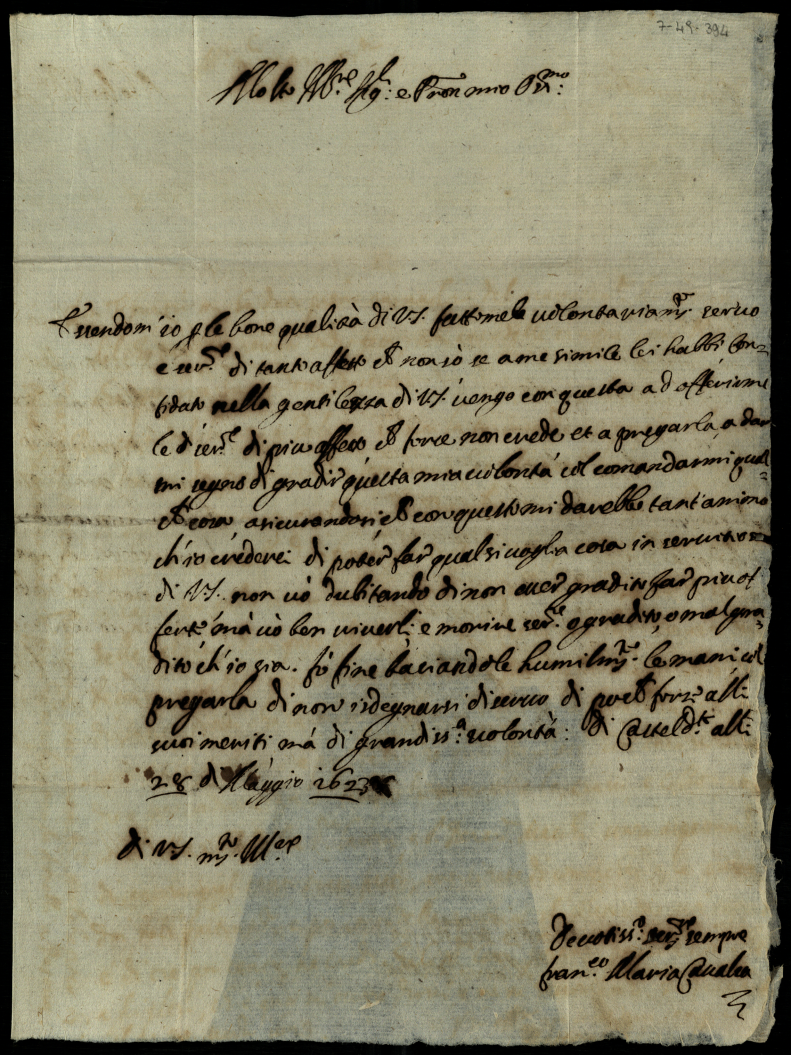 7-49-394
Molto Ill.re Sig: e Pron mio Oss.mo:
Essendom' io p le bone qualità di VS. fattomele volontariam.te servo
e ser.re di tanto affetto ch non sò se a me simile lei habbi Con=
fidato nella gentilezza di VS. vengo con questa ad offerirme
le di ser.re di piu affetto ch forse non crede et a pregarla, a dar
mi segno di gradir questa mia volontá col comandarmi qual=
ch cosa asicurandosi ch con questo mi darebbe tant'animo
ch'io crederei di poter far qual si voglia cosa in servitio
di VS. non vó dubitando di non aver gradito far piu of
ferte má vó ben viverli e morire ser.re ó gradito, o mal gra=
dito ch'io sia. fó fine baciandole humilm.te le mani, col
pregarla di non isdegnarsi di servo di poch forze all:
suoi meriti má di grandiss.a volontá: di Casteld.te all:
28 di Maggio 1623
di VS. m.to Ill.re
Devotiss.o ser.re sempre
fran.co Maria Cavalca